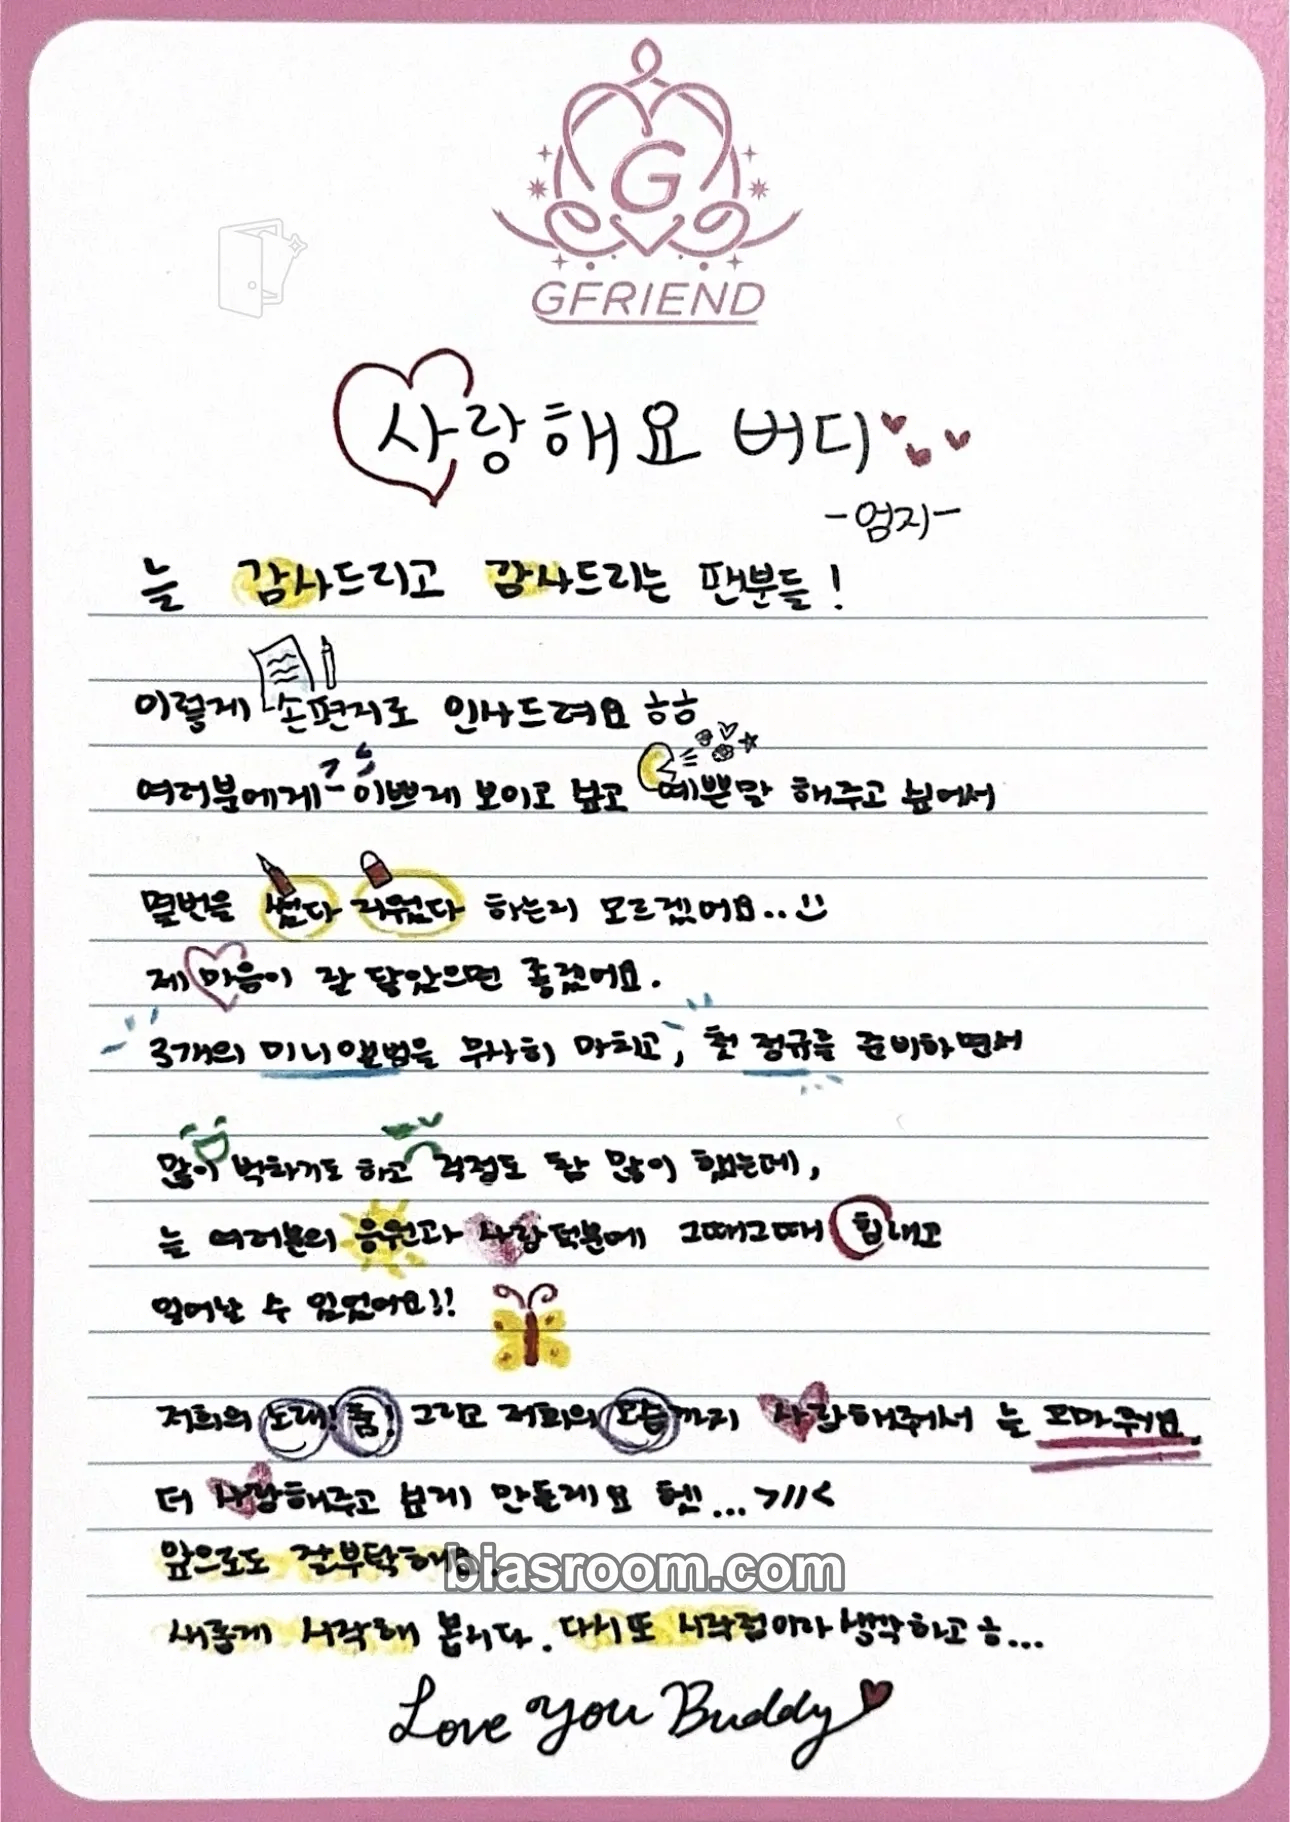 G
GFRIEND
사랑해요 버디
-엄지-
늘 감사드리고 감사드리는 팬분들!
이렇게 손편지로 인사드려요 ㅎㅎ
여러분에게 이쁘게 보이고 싶고 예쁜말 해주고 싶어서
몇번을 썼다 지웠다 하는지 모르겠어요..
제 마음이 잘 닿았으면 좋겠어요.
3개의 미니앨범을 무사히 마치고, 첫 정규를 준비하면서
많이 벅차기도 하고 걱정도 참 많이 했는데,
늘 여러분의 응원과 사랑 덕분에 그때그때 힘내고
일어날 수 있었어요!!
저희의 노래! 춤! 그리고 저희의 모습까지 사랑해줘서 늘 고마워요.
더 사랑해주고 싶게 만들게요 헷!...>//<
앞으로도 잘부탁해요.
biasroom.com
새롭게 시작해 봅시다. 다시 또 시작점이라 생각하고 ㅎ...
Love you Buddy